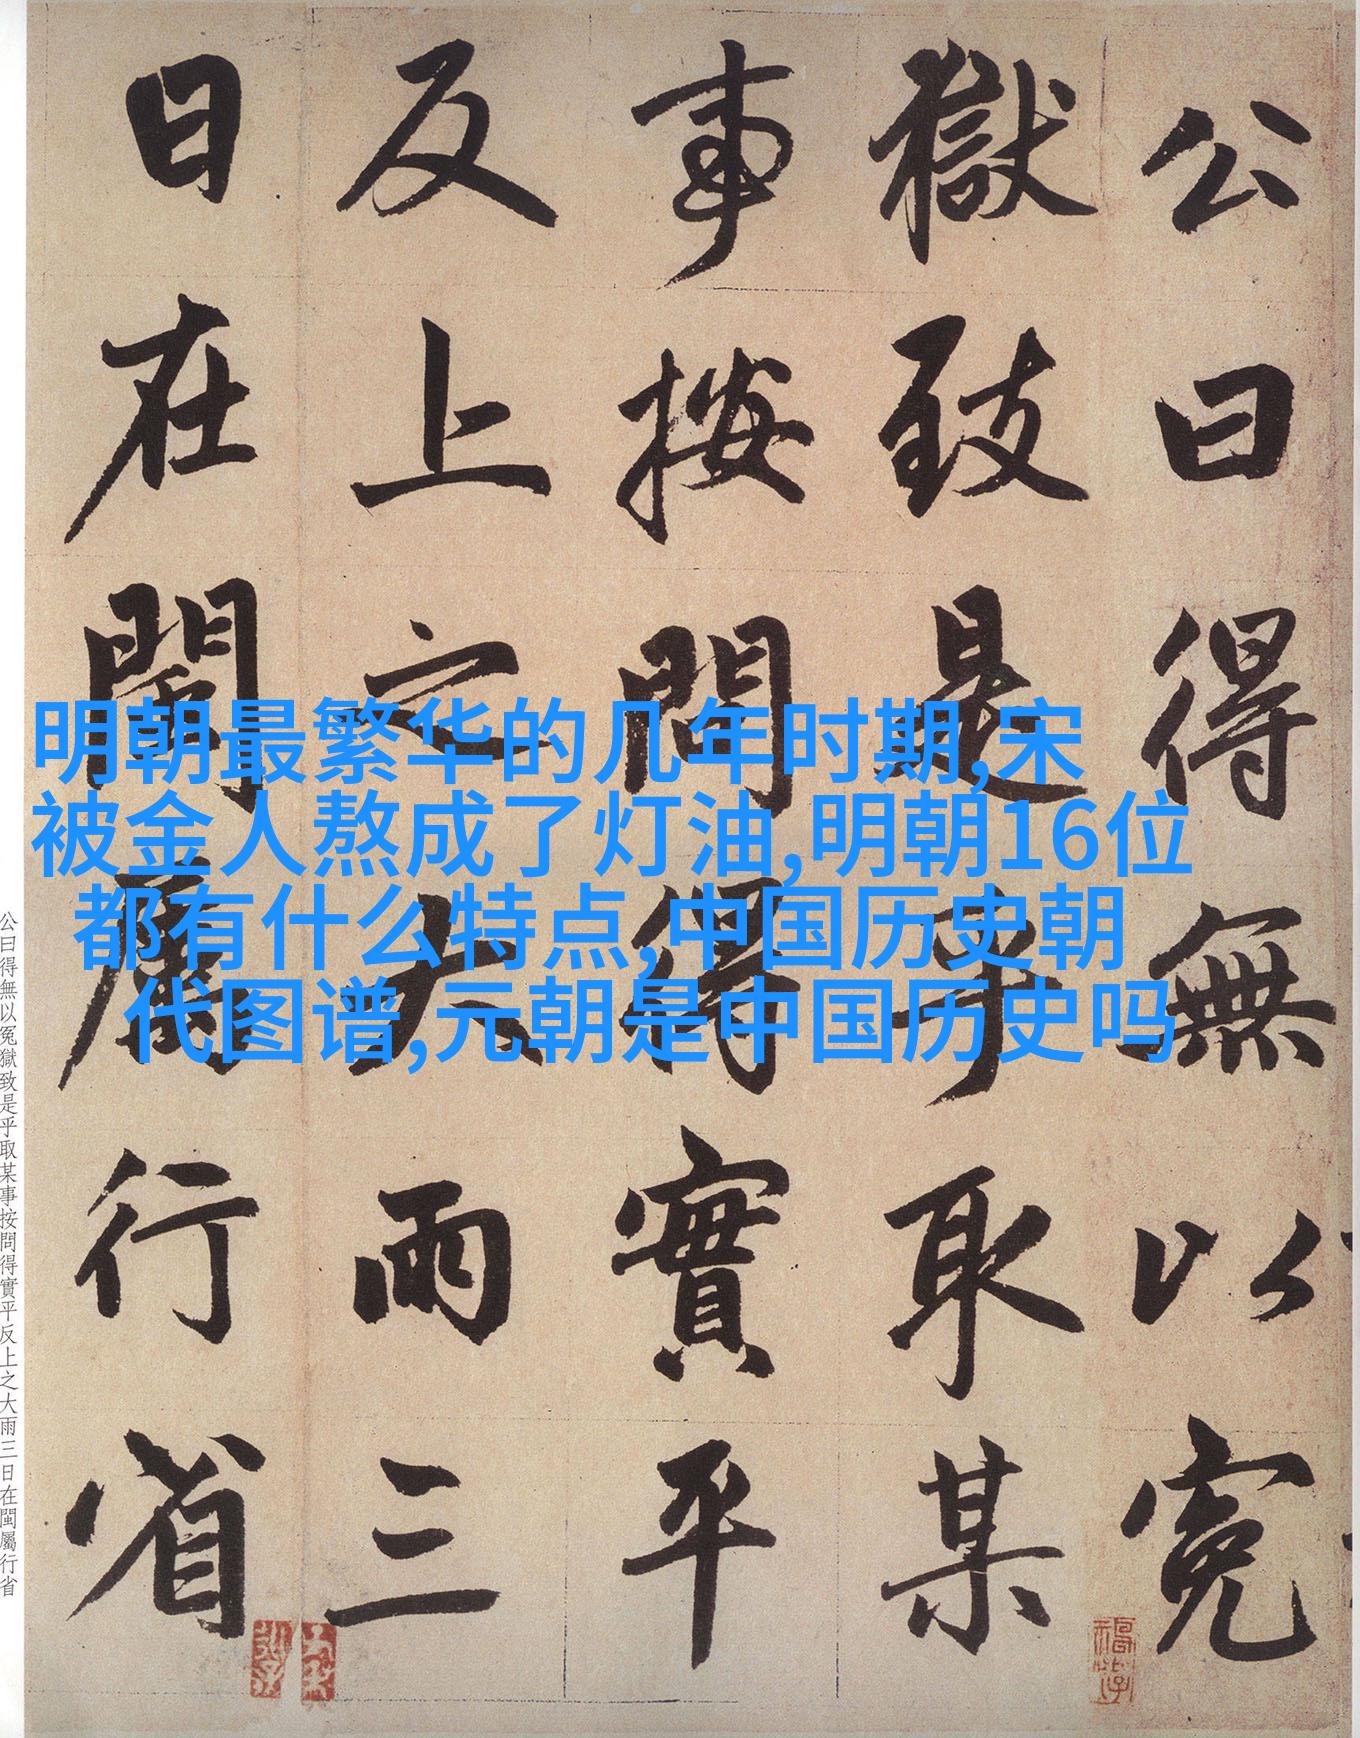 公曰得無以冤
獄致是乎取某
事按問得實平
反上之大雨三
日在閩屬行省
明朝最繁华的几年时期,宋
被金人熬成了灯油,明朝16位
都有什么特点,中国历史朝
代图谱,元朝是中国历史吗
公曰得無以冤獄致是乎取某事按問得實平反上之大雨三日在閩屬行省